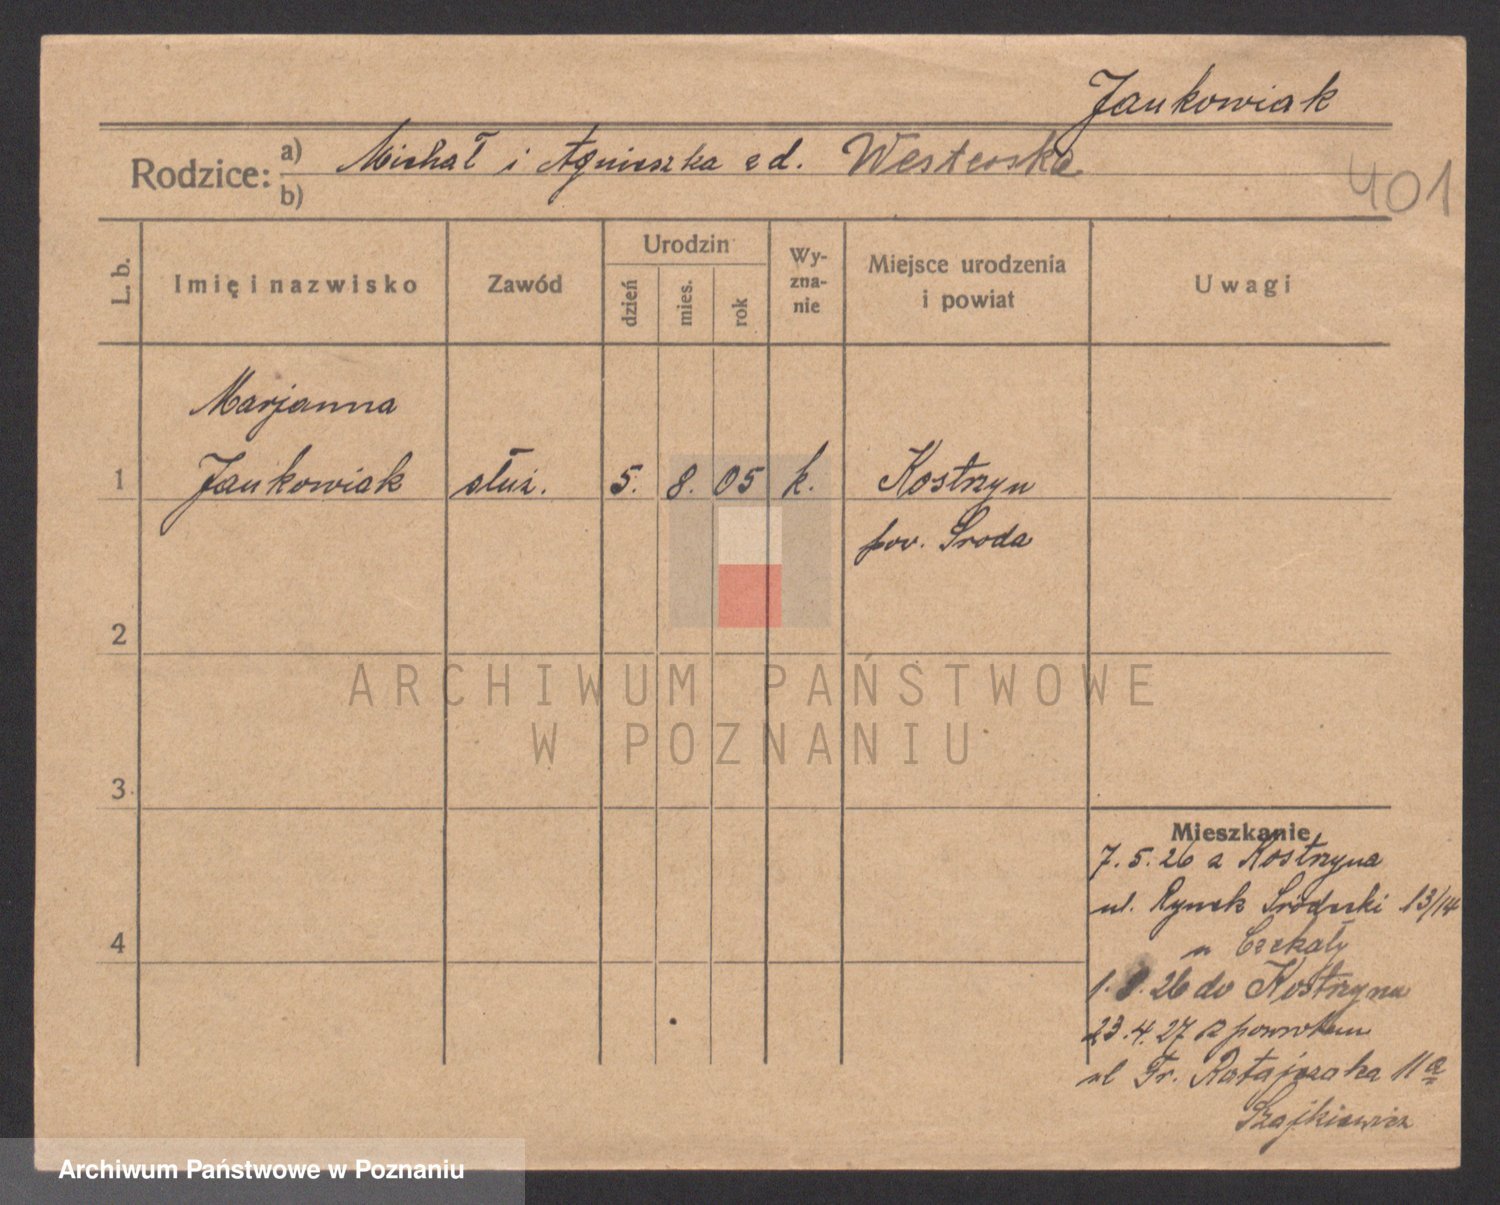 Jankowiak
Rodzice: a) Michał i Agnieszka zd.
b)
401
L. b.
Imię i nazwisko
Zawód
Urodzin
dzień
mies.
rok
Wy-
zna-
nie
Miejsce urodzenia
i powiat
Uwagi
Marjanna
1 Jankowiak służ. 5. 8. 05 k. Kostrzyn
pow. Środa
2
ARCHIWUM PAŃSTWOWE
W POZNANIU
3
Mieszkanie
7.5.26 z Kostrzyna
ul. Rynek Śródecki 13/14
u Czekały
1. 26 do Kostrzyna
4
23.4.27 z powrotem
ul Fr. Ratajczaka 11a
Szajkiewicz
Archiwum Państwowe w Poznaniu